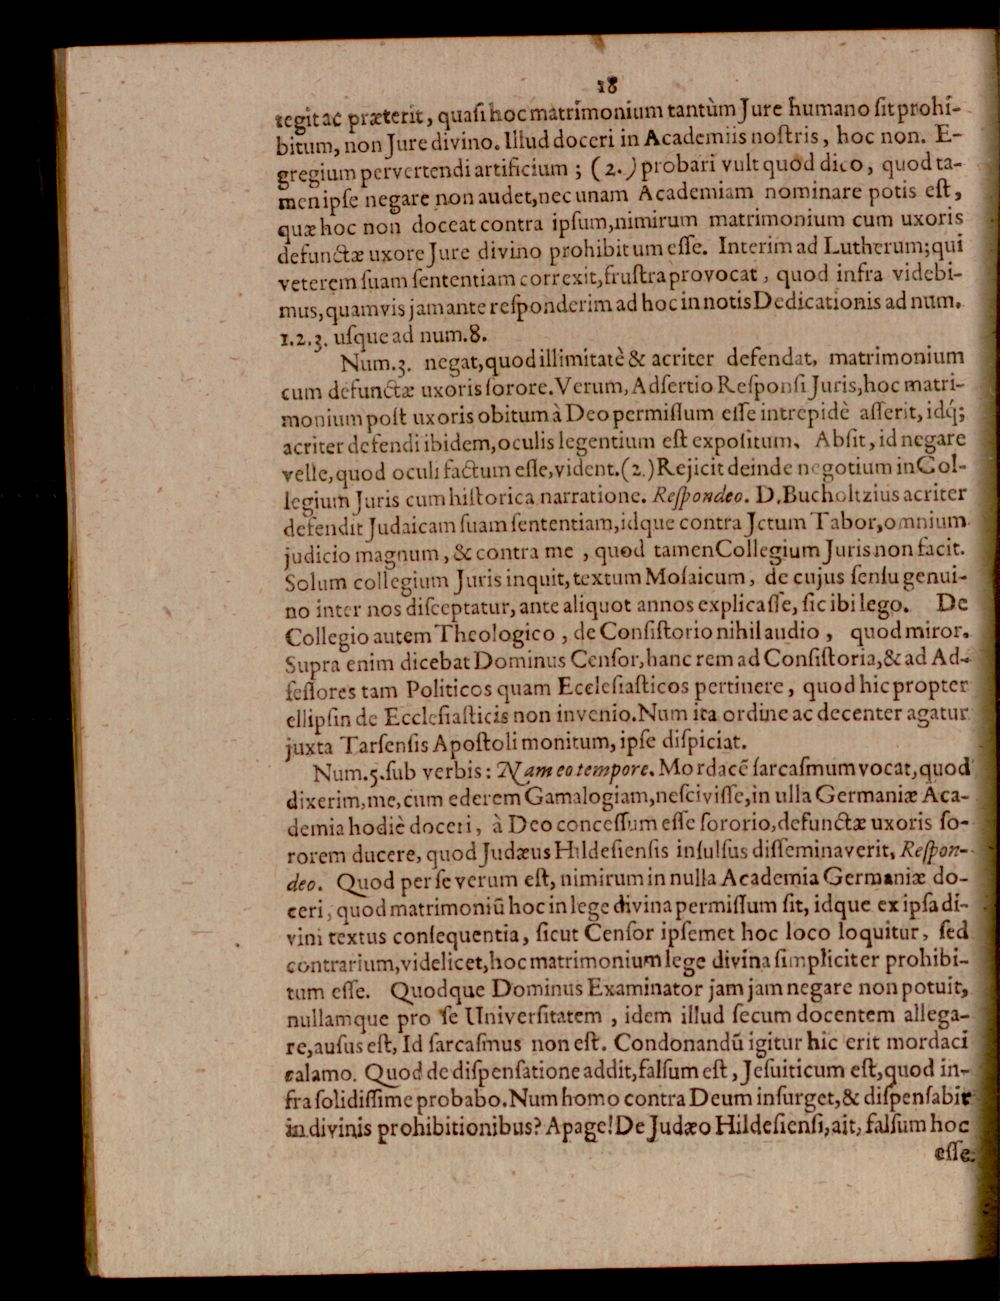 18
tegit ac præterit, quaſi hoc matrimonium tantùm Jure humano ſit prohi-
bitum, non Jure divino. Illud doceri in Academiis noſtris, hoc non. E-
gregium pervertendi artificium; (2.) probari vult quod dico, quod ta-
men ipſe negare non audet, nec unam Academiam nominare potis eſt,
quæ hoc non doceat contra ipſum, nimirum matrimonium cum uxoris
defunctæ uxore Jure divino prohibitum eſſe. Interim ad Lutherum; qui
veterem ſuam ſententiam correxit, fruſtra provocat, quod infra videbi-
mus, quamvis jam ante reſponderim ad hoc in notis Dedicationis ad num.
1.2.3. uſque ad num. 8.
Num. 3. negat, quod illimitatè & acriter defendat, matrimonium
cum defunctæ uxoris ſorore. Verum, Adſertio Reſponſi Juris, hoc matri-
monium poſt uxoris obitum à Deo permiſſum eſſe intrepidè aſſerit, idq́;
acriter defendi ibidem, oculis legentium eſt expoſitum. Abſit, id negare
velle, quod oculi factum eſſe, vident. (2.) Rejicit deinde negotium in Col-
legium Juris cum hiſtorica narratione. Reſpondeo. D. Bucholtzius acriter
defendit Judaicam ſuam ſententiam, idque contra Jctum Tabor, omnium
judicio magnum, & contra me, quod tamen Collegium Juris non facit.
Solum collegium Juris inquit, textum Moſaicum, de cujus ſenſu genui-
no inter nos diſceptatur, ante aliquot annos explicaſſe, ſic ibi lego. De
Collegio autem Theologico, de Conſiſtorio nihil audio, quod miror.
Supra enim dicebat Dominus Cenſor, hanc rem ad Conſiſtoria, & ad Ad-
ſeſſores tam Politicos quam Eccleſiaſticos pertinere, quod hic propter
ellipſin de Eccleſiaſticis non invenio. Num ita ordine ac decenter agatur
juxta Tarſenſis Apoſtoli monitum, ipſe diſpiciat.
Num. 5. ſub verbis: Nam eo tempore. Mordacē ſarcaſmum vocat, quod
dixerim, me, cum ederem Gamalogiam, neſciviſſe, in ulla Germaniæ Aca-
demia hodiè doceri, à Deo conceſſum eſſe ſororio, defunctæ uxoris ſo-
rorem ducere, quod Judæus Hildeſienſis inſulſus diſſeminaverit. Reſpon-
deo. Quod per ſe verum eſt, nimirum in nulla Academia Germaniæ do-
ceri, quod matrimoniū hoc in lege divina permiſſum ſit, idque ex ipſa di-
vini textus conſequentia, ſicut Cenſor ipſemet hoc loco loquitur, ſed
contrarium, videlicet, hoc matrimonium lege divina ſimpliciter prohibi-
tum eſſe. Quodque Dominus Examinator jam jam negare non potuit,
nullamque pro ſe Univerſitatem, idem illud ſecum docentem allega-
re, auſus eſt, Id ſarcaſmus non eſt. Condonandū igitur hic erit mordaci
calamo. Quod de diſpenſatione addit, falſum eſt, Jeſuiticum eſt, quod in-
fra ſolidiſſime probabo. Num homo contra Deum inſurget, & diſpenſabit
in divinis prohibitionibus? Apage! De Judæo Hildeſienſi, ait, falſum hoc
eſſe.